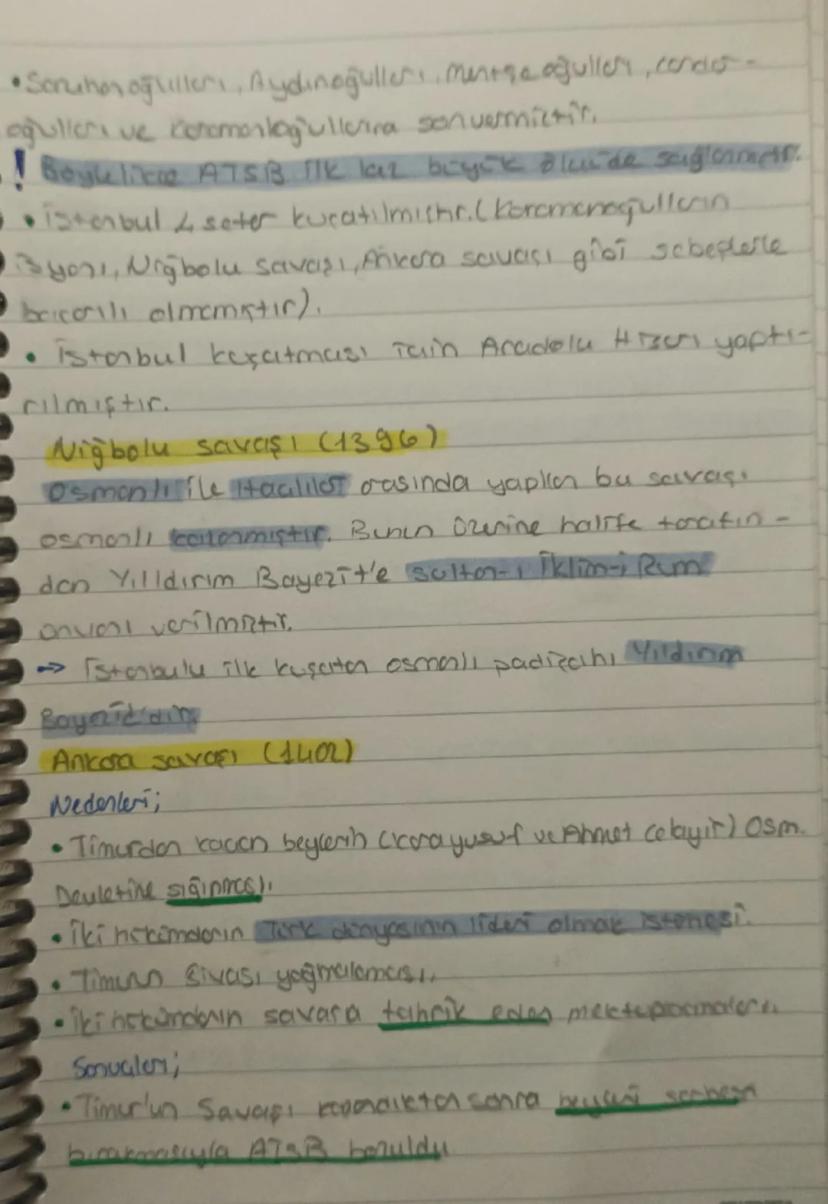 • Saruhanoğulları, Aydınoğulları, Menteşeoğulları, candar-
oğulları ve Karamanoğullarına sonvermiştir.
! Böylelikle ATSB ilk kez büyük ölçüde sağlanmıştır.
• İstanbul 4 sefer kuşatılmıştır. (Karamanoğullarının
isyanı, Niğbolu savaşı, Ankara savaşı gibi sebeplerle
başarılı olmamıştır).
• İstanbul kuşatması için Anadolu Hisarı yaptı-
rılmıştır.
Niğbolu savaşı (1396)
Osmanlı ile Haçlılar arasında yapılan bu savaşı
osmanlı kazanmıştır. Bunun üzerine halife tarafın-
dan Yıldırım Bayezit'e sultan-ı İklim-i Rum
unvanı verilmiştir.
⇒ İstanbulu ilk kuşatan osmanlı padişahı Yıldırım
Bayezid'dir.
Ankara savaşı (1402)
Nedenleri;
• Timurdan kaçan beylerin (Kara yusuf ve Ahmet Celayir) Osm.
Devletine sığınması.
• İki hükümdarın Türk dünyasının lideri olmak istemesi.
• Timurun Sivası yağmalaması.
• İki hükümdarın savaşa tahrik eden mektuplaşmaları.
Sonuçları;
• Timur'un Savaşı kazandıktan sonra beyleri serbest
bırakmasıyla ATSB bozuldu